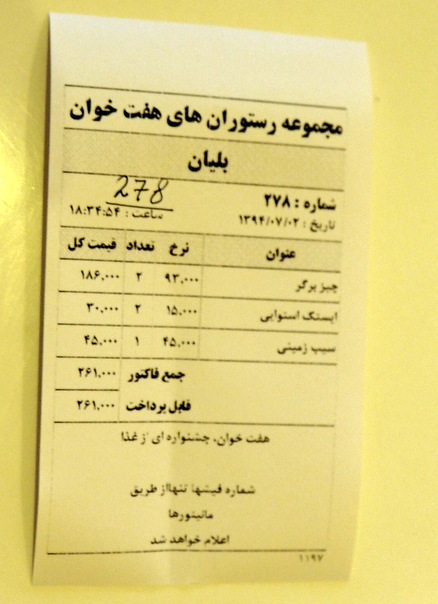 مجموعه رستوران های هفت خوان
بلیان
شماره : ۲۷۸
278
تاریخ : ۱۳۹۴/۰۷/۰۲ ساعت : ۱۸:۳۴:۵۴
عنوان نرخ تعداد قیمت کل
چیز برگر ۹۳,۰۰۰ ۲ ۱۸۶,۰۰۰
ایستک استوایی ۱۵,۰۰۰ ۲ ۳۰,۰۰۰
سیب زمینی ۴۵,۰۰۰ ۱ ۴۵,۰۰۰
جمع فاکتور ۲۶۱,۰۰۰
قابل پرداخت ۲۶۱,۰۰۰
هفت خوان، جشنواره ای از غذا
شماره فیشها تنهااز طریق
مانیتورها
اعلام خواهد شد
۱۱۹۷